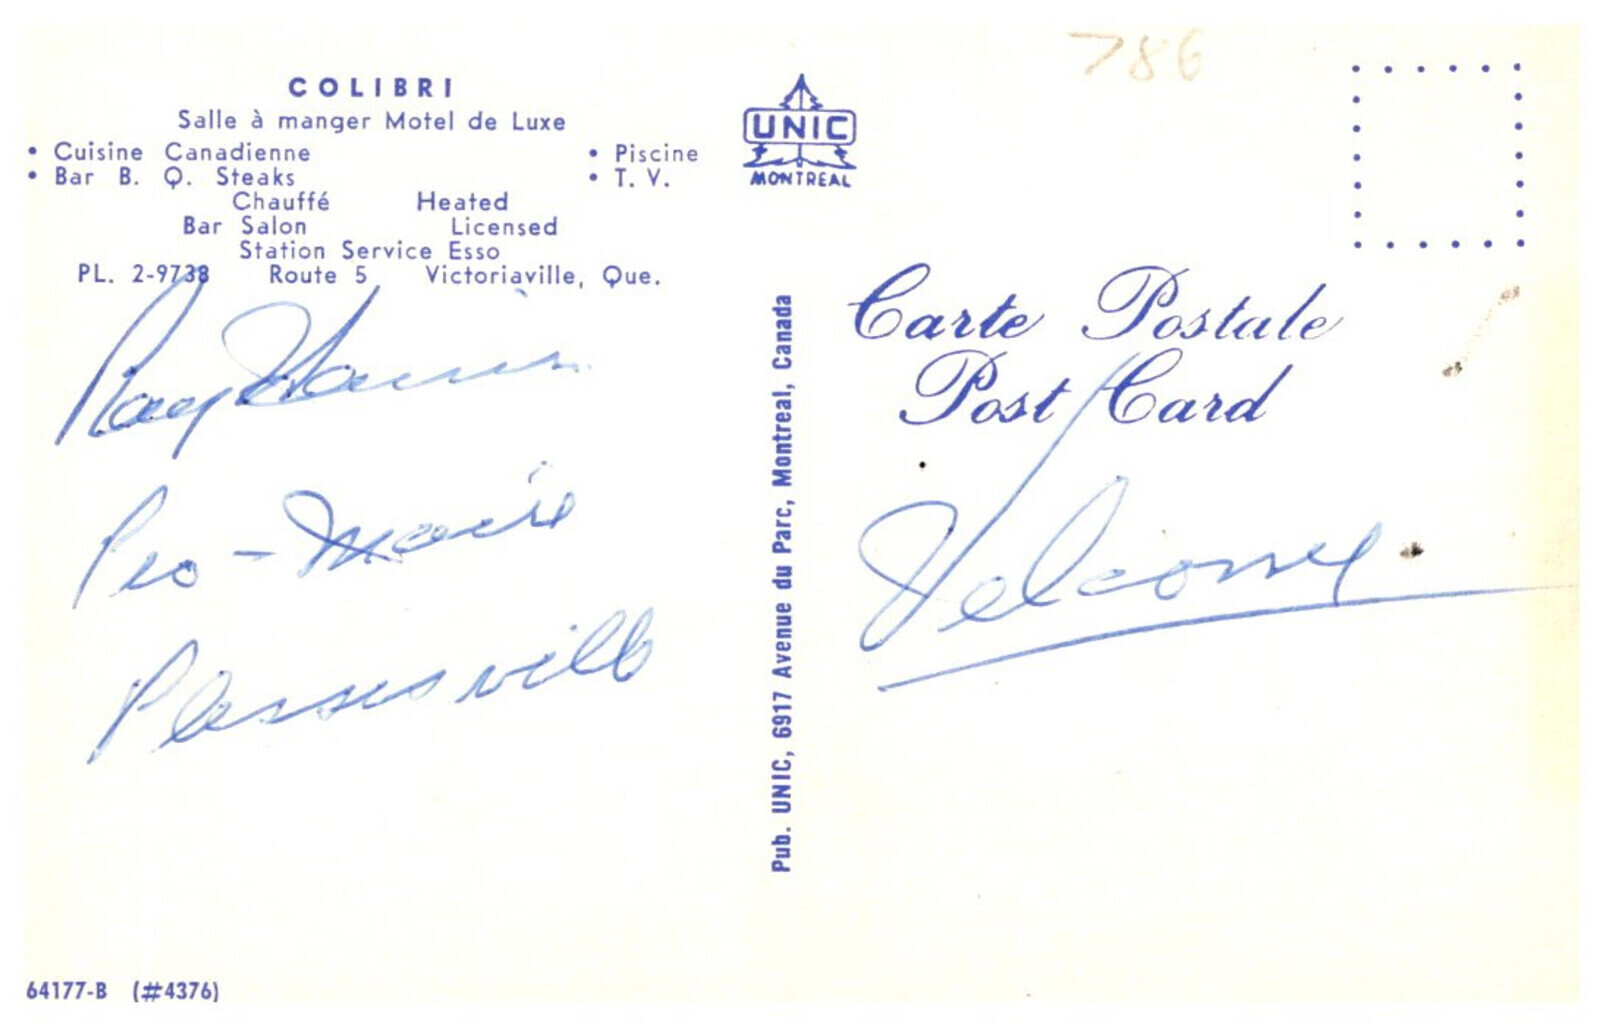 COLIBRI
Salle à manger Motel de Luxe
• Cuisine Canadienne • Piscine
• Bar B. Q. Steaks • T. V.
Chauffé Heated
Bar Salon Licensed
Station Service Esso
PL. 2-9738 Route 5 Victoriaville, Que.
Ray
Pro-Maire
Plessisville
64177-B (#4376)
UNIC
MONTREAL
Pub. UNIC, 6917 Avenue du Parc, Montreal, Canada
786
Carte Postale
Post Card
Welcome